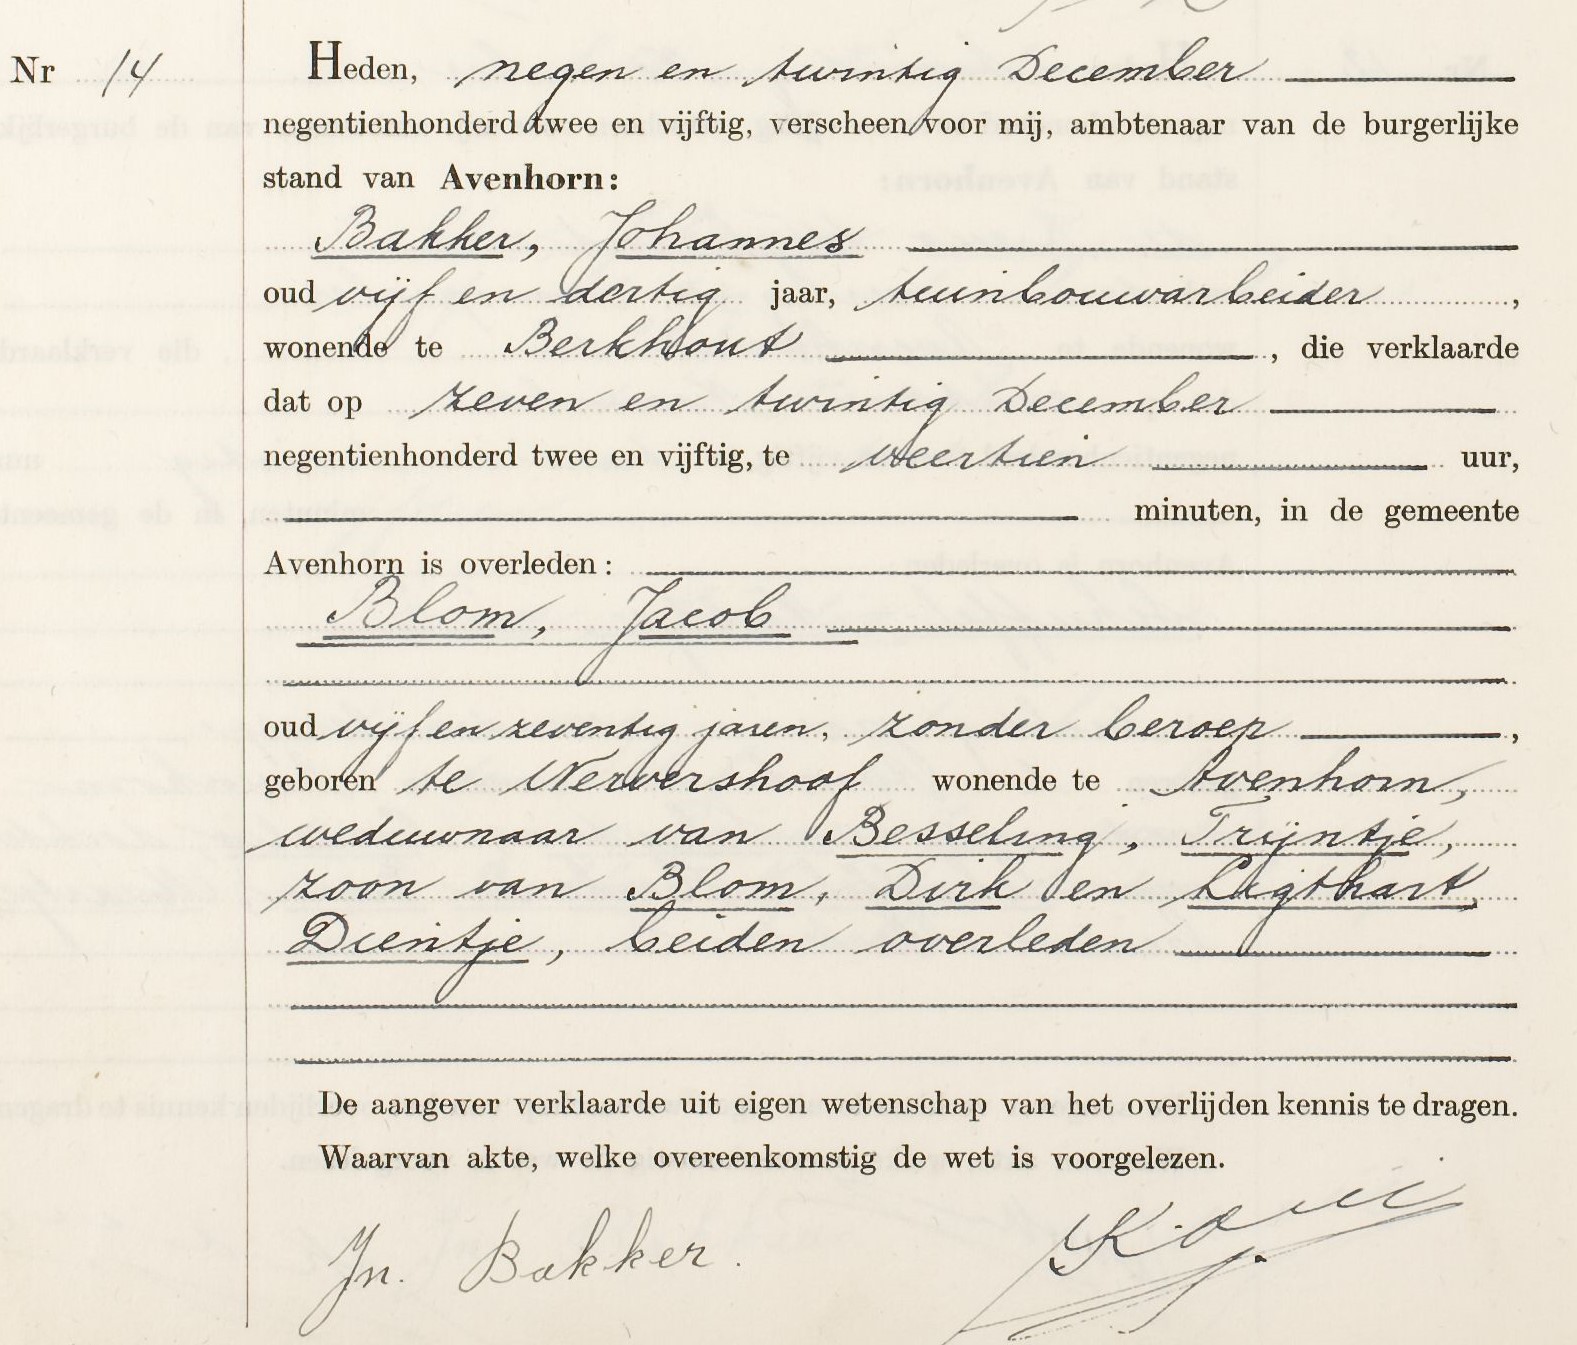 Nr 14
Heden, negen en twintig December
negentienhonderd twee en vijftig, verscheen voor mij, ambtenaar van de burgerlijke
stand van Avenhorn:
Bakker, Johannes
oud vijf en dertig jaar, tuinbouwarbeider,
wonende te Berkhout, die verklaarde
dat op zeven en twintig December
negentienhonderd twee en vijftig, te veertien uur,
minuten, in de gemeente
Avenhorn is overleden:
Blom, Jacob
oud vijf en zeventig jaren, zonder beroep,
geboren te Wervershoof wonende te Avenhorn,
weduwnaar van Besseling, Trijntje,
zoon van Blom, Dirk en Ligthart,
Dientje, beiden overleden
De aangever verklaarde uit eigen wetenschap van het overlijden kennis te dragen.
Waarvan akte, welke overeenkomstig de wet is voorgelezen.
Jn. Bakker.